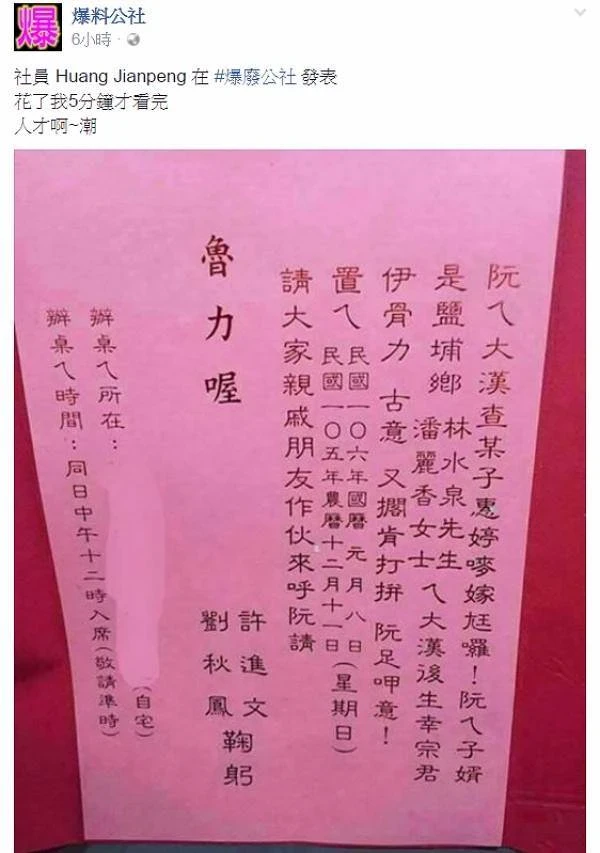 爆
爆料公社
6小時 ·
社員 Huang Jianpeng 在 #爆廢公社 發表
花了我5分鐘才看完
人才啊~潮
阮ㄟ大漢查某子惠婷嘜嫁尪囉！阮ㄟ子婿
是鹽埔鄉
林水泉先生
潘麗香女士
ㄟ大漢後生幸宗君
伊骨力 古意 又擱肯打拼 阮足呷意！
置ㄟ
民國一〇六年國曆 元月八日
民國一〇五年農曆十二月十一日
(星期日)
請大家親戚朋友作伙來呼阮請
魯力喔
許進文
劉秋鳳
鞠躬
辦桌ㄟ所在：
(自宅)
辦桌ㄟ時間：同日中午十二時入席(敬請準時)